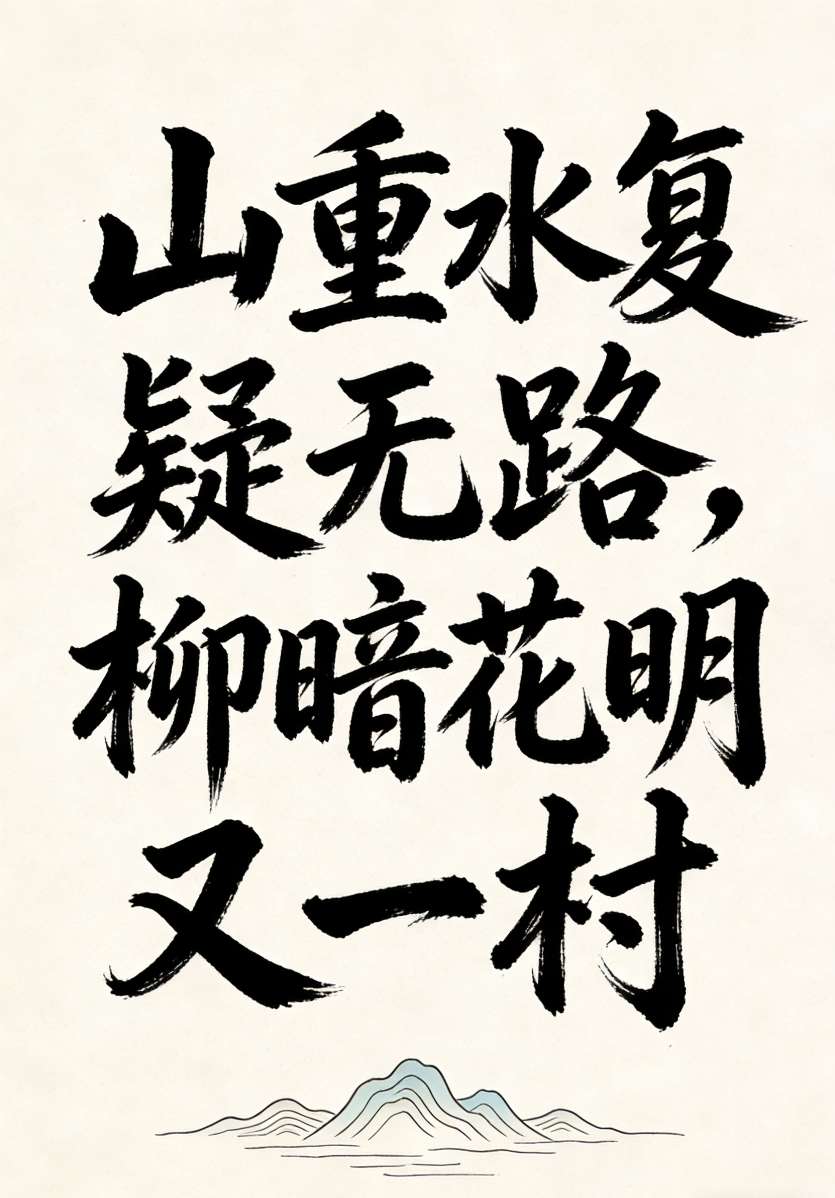 山重水复
疑无路，
柳暗花明
又一村